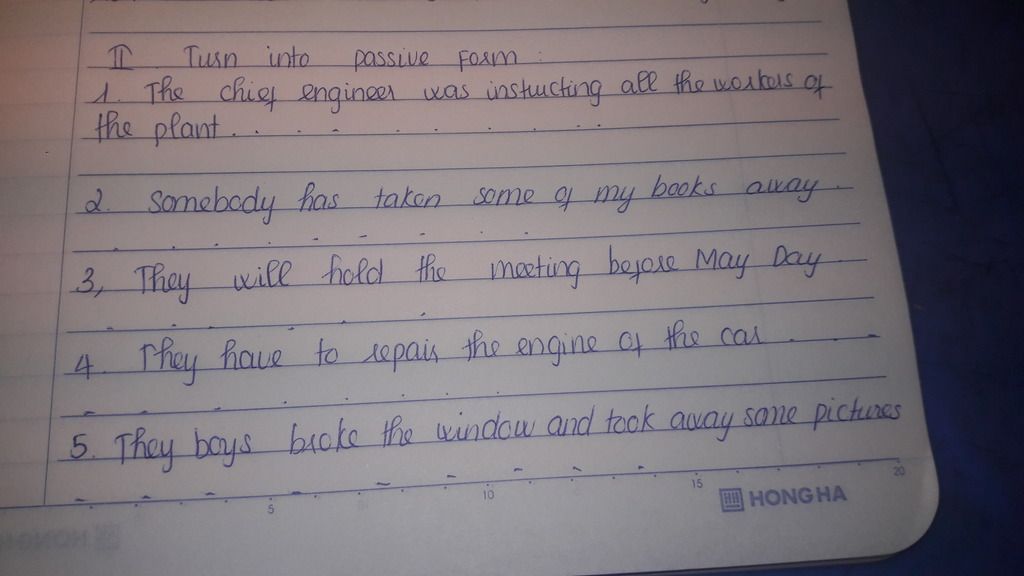 II. Turn into passive form :
1. The chief engineer was instructing all the workers of
the plant . . . . . . . . .
2. Somebody has taken some of my books away .
. . . . . - - - . . .
3, They will hold the meeting before May Day .
. . . . . .
4. They have to repair the engine of the car . . -
- - . . . . . .
5. They boys broke the window and took away some pictures
5 10 15 20
HONG HA